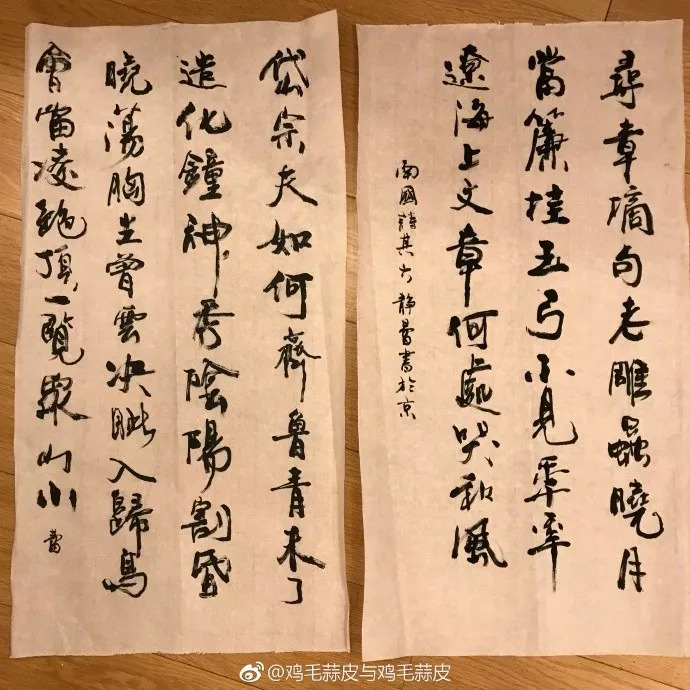 尋章摘句老雕蟲曉月
當簾挂玉弓不見年年
遼海上文章何處哭秋風
南園詩其六 静曼書於京
岱宗夫如何齊魯青未了
造化鐘神秀陰陽割昏
曉蕩胸生曾雲決眦入歸鳥
會當凌絕頂一覽衆山小
@鸡毛蒜皮与鸡毛蒜皮